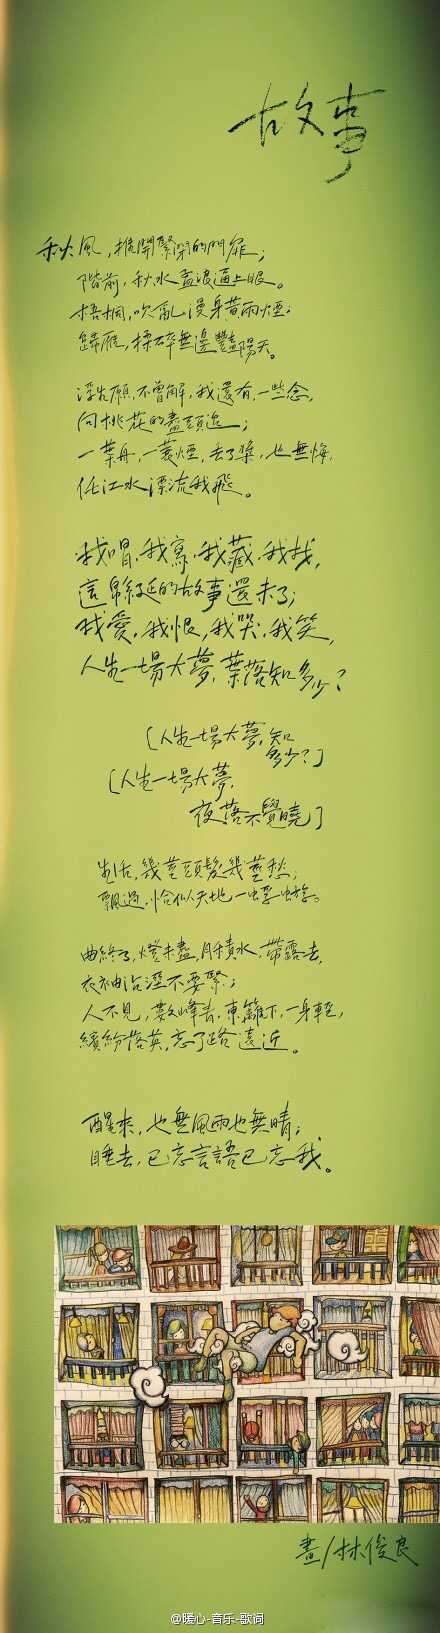 故事
秋風，推開緊閉的門扉；
階前，秋水孟浪逼上眼。
梧桐，吹亂漫身黃雨煙；
歸雁，揉碎無邊豔陽天。
浮生願，不曾解，我還有，一些念，
向桃花的盡頭追；
一葉舟，一蓑煙，丟了槳，也無悔，
任江水漂流我飛。
我唱，我寫，我藏，我找，
這綿延的故事還未了；
我愛，我恨，我哭，我笑，
人生一場大夢，葉落知多少？
(人生一場大夢，知
多少？)
(人生一場大夢，
夜落不覺曉)
生活，幾莖頭髮幾莖愁；
飄過，恰似天地一蜉蝣。
曲終了，燈未盡，月積水，帶露去，
衣袖沾溼不要緊；
人不見，數峰青，東籬下，一身輕，
繽紛落英，忘了路遠近。
醒來，也無風雨也無晴；
睡去，已忘言語已忘我。
畫/林俊良
@暖心-音乐-歌词